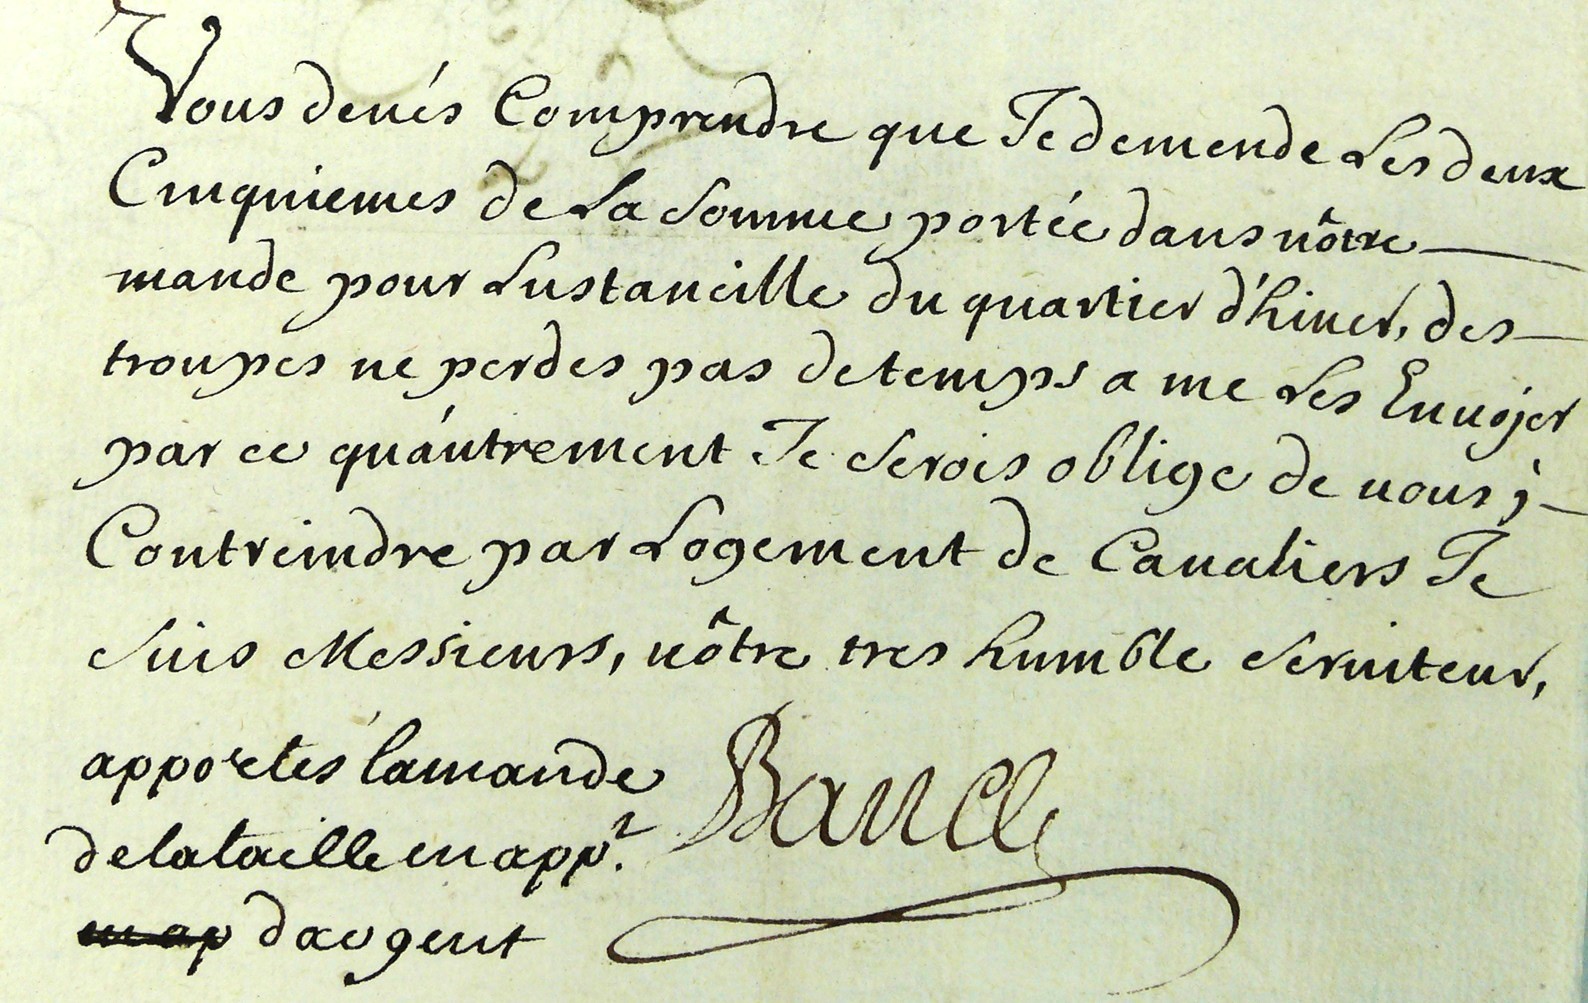 Vous deués Comprendre que Je demende Les deux
Cinquiemes de La Somme portée dans uôtre
mande pour Lustancille du quartier d'hiuer, des
troupes ne perdes pas de temps a me Les Enuoÿer
par ce qu'autrement Je Serois oblige de uous j
Contreindre par Logement de Caualiers Je
Suis Messieurs, uôtre tres humble Seruiteur,
apportes lamande
delataille en appr.
dargent